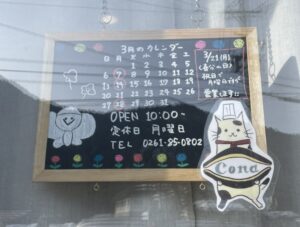 3月のカレンダー
日 月 火 水 木 金 土
1 2 3 4 5
6 7 8 9 10 11 12
13 14 15 16 17 18 19
20 21 22 23 24 25 26
27 28 29 30 31
3/21(月)
(春分の日)
祝日で
月曜日ですが
営業します
OPEN 10:00~
定休日 月曜日
TEL 0261-85-0802
Cona